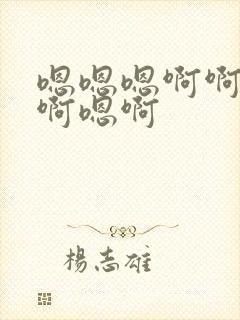 嗯嗯嗯啊啊
啊嗯啊
杨志雄